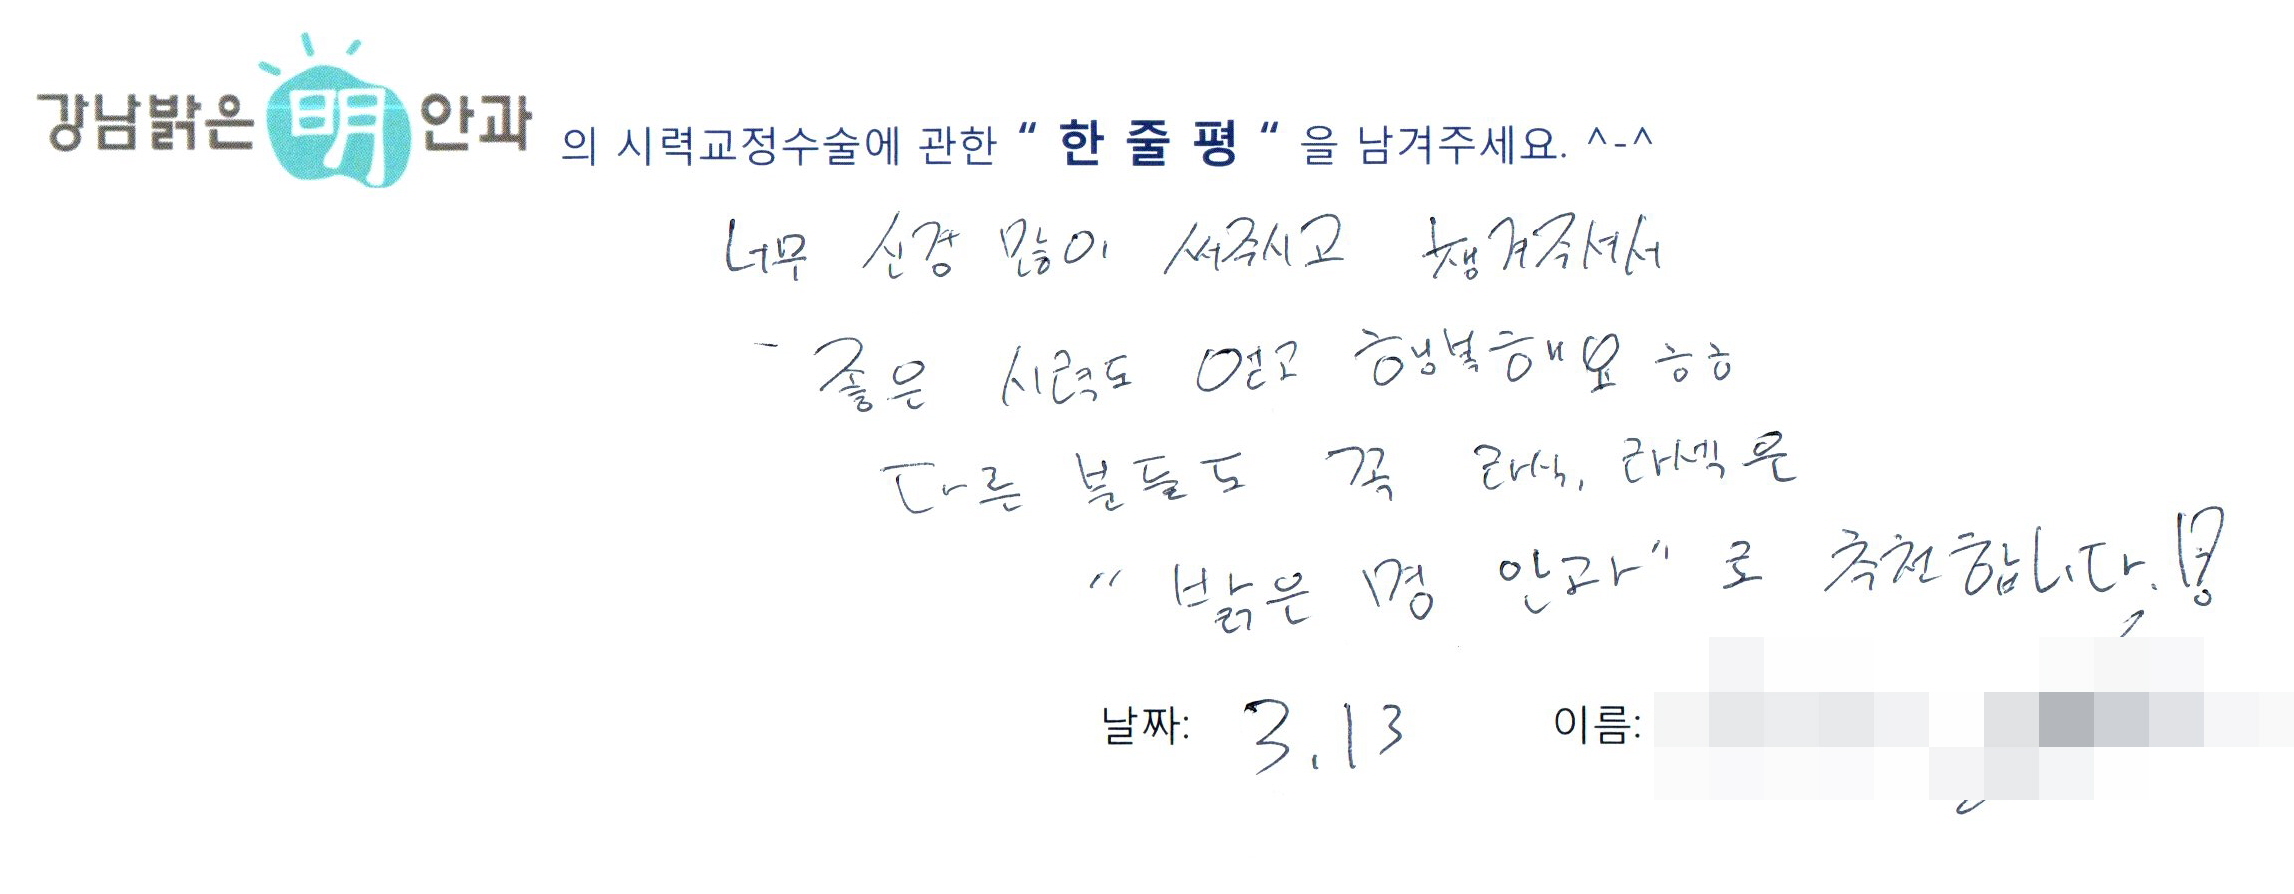 강남밝은 明 안과 의 시력교정수술에 관한 “ 한 줄 평 “ 을 남겨주세요. ^-^
너무 신경 많이 써주시고 챙겨주셔서
좋은 시력도 얻고 행복해요 ㅎㅎ
다른 분들도 꼭 라식, 라섹은
“ 밝은 명 안과” 로 추천합니다.!
날짜: 3.13 이름: